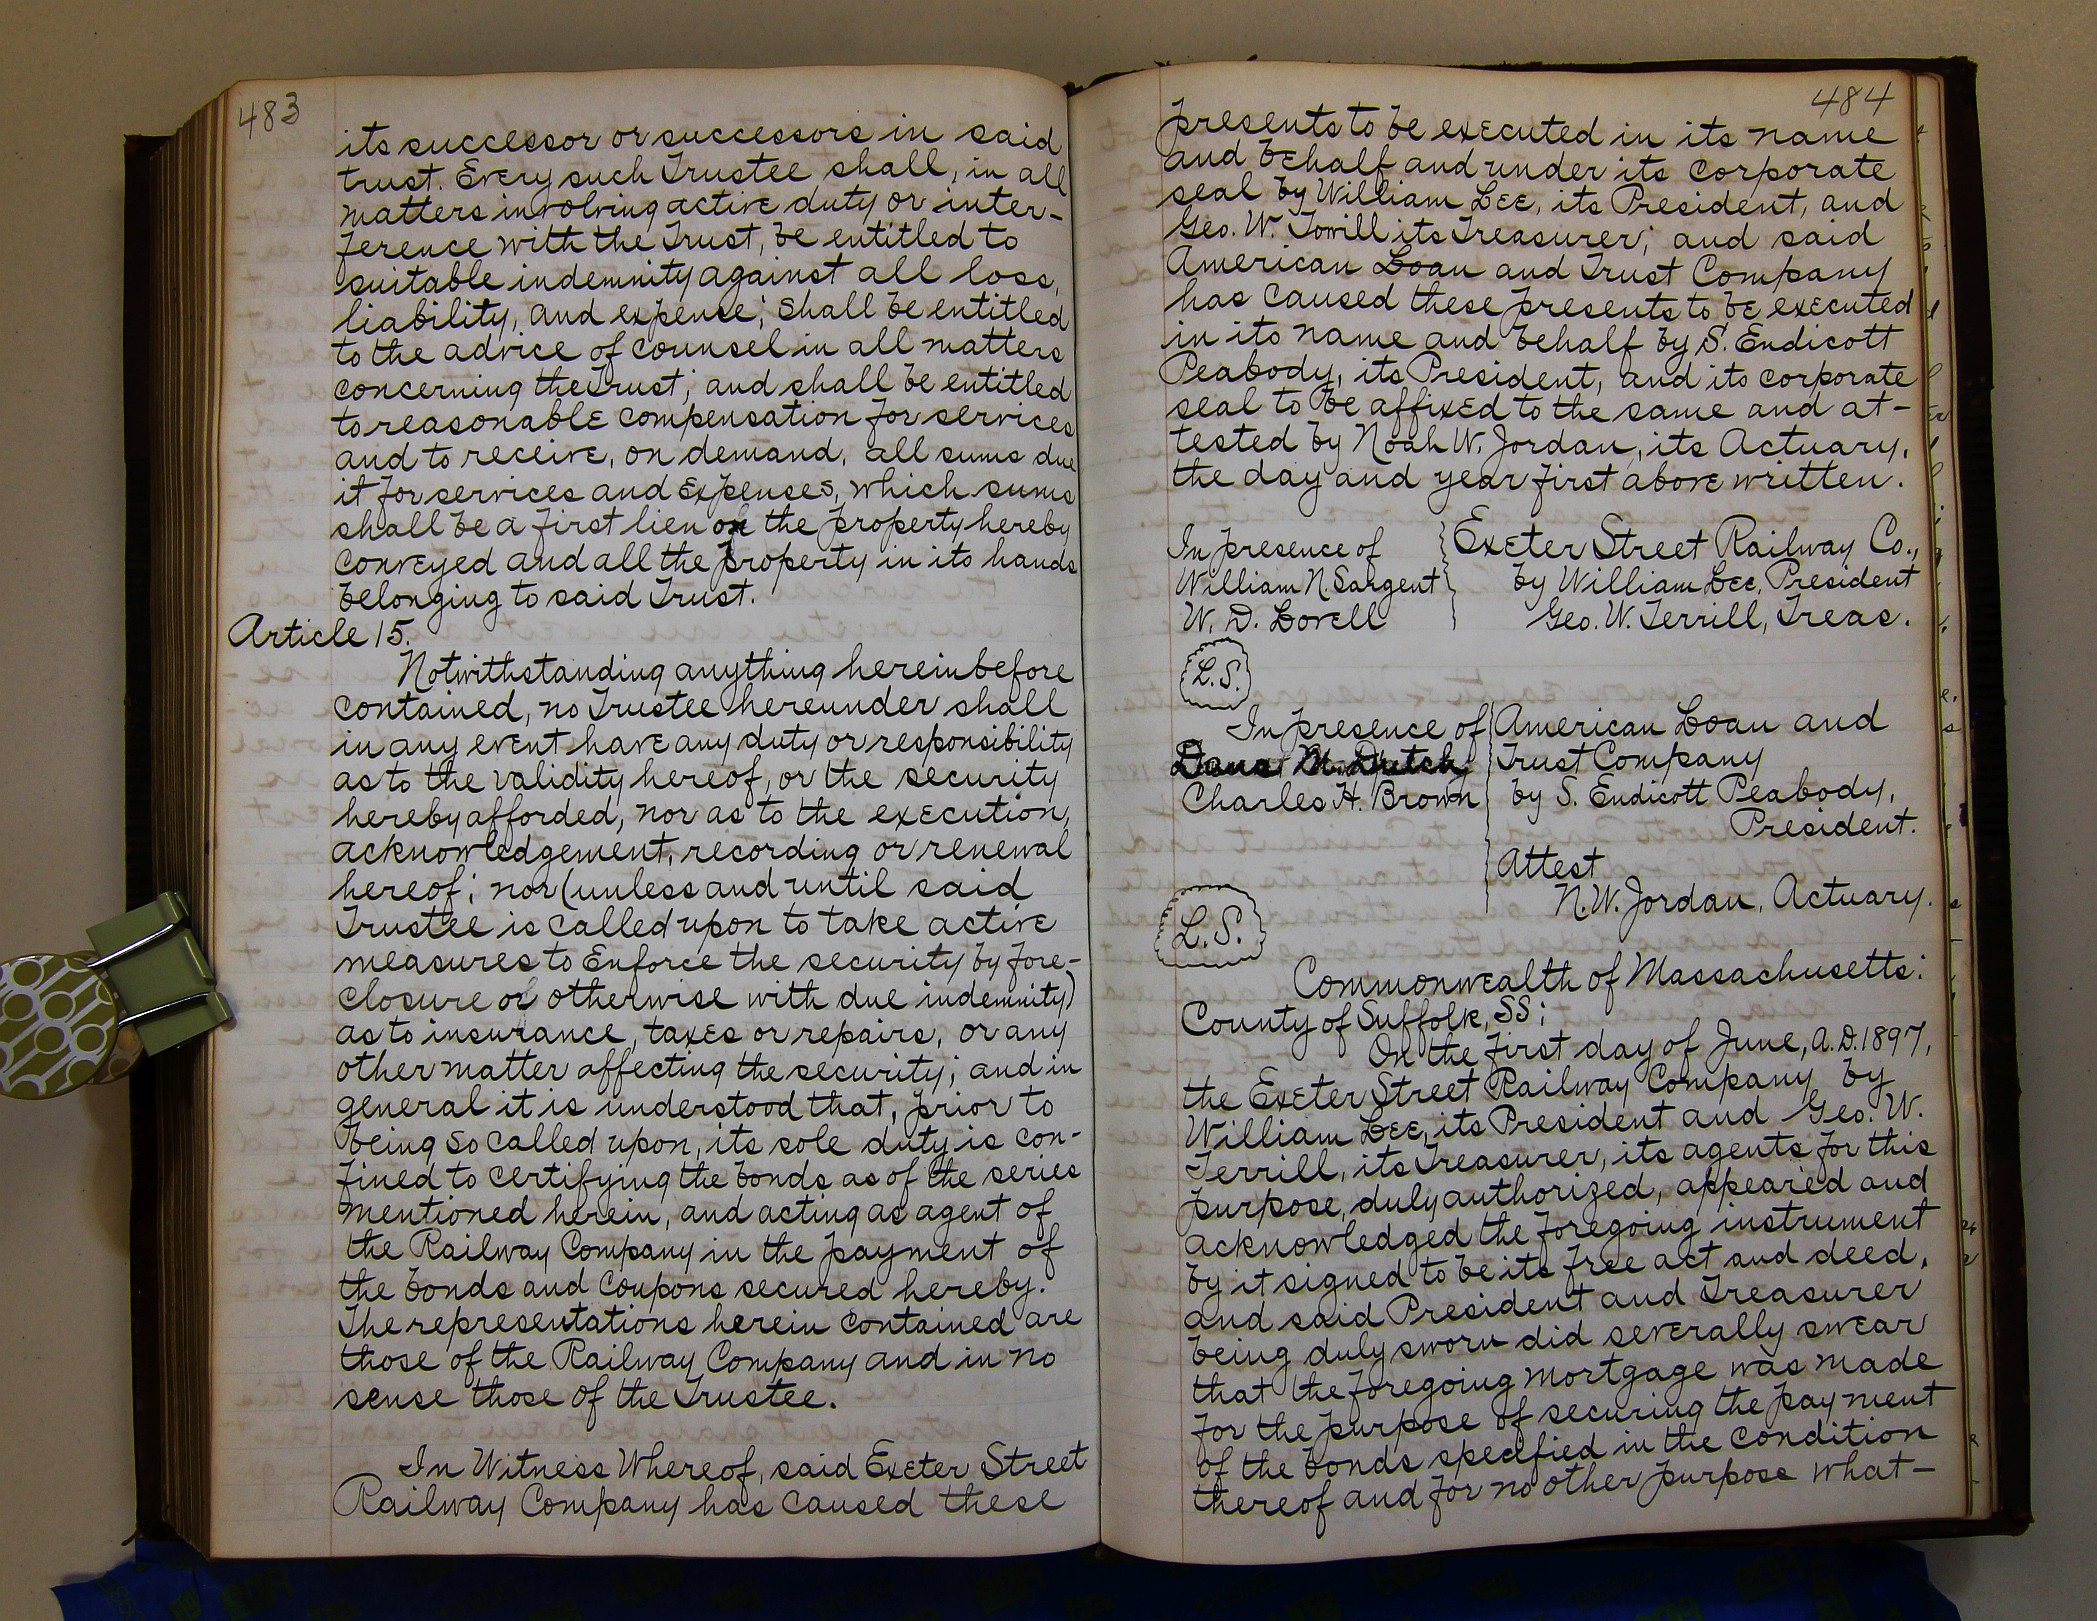 483
its successor or successors in said
trust. Every such Trustee shall, in all
matters involving active duty or inter-
ference with the Trust, be entitled to
suitable indemnity against all loss,
liability, and expense; shall be entitled
to the advice of counsel in all matters
concerning the Trust; and shall be entitled
to reasonable compensation for services
and to receive, on demand, all sums due
it for services and expenses, which sums
shall be a first lien on the property hereby
conveyed and all the property in its hands
belonging to said Trust.
Article 15.
Notwithstanding anything hereinbefore
contained, no Trustee hereunder shall
in any event have any duty or responsibility
as to the validity hereof, or the security
hereby afforded, nor as to the execution,
acknowledgement, recording or renewal
hereof; nor (unless and until said
Trustee is called upon to take active
measures to enforce the security by fore-
closure or otherwise with due indemnity)
as to insurance, taxes or repairs, or any
other matter affecting the security; and in
general it is understood that, prior to
being so called upon, its sole duty is con-
fined to certifying the bonds as of the series
mentioned herein, and acting as agent of
the Railway Company in the payment of
the bonds and coupons secured hereby.
The representations herein contained are
those of the Railway Company and in no
sense those of the Trustee.
In Witness Whereof, said Exeter Street
Railway Company has caused these
484
presents to be executed in its name
and behalf and under its corporate
seal by William Lee, its President, and
Geo. W. Towill its Treasurer; and said
American Loan and Trust Company
has caused these presents to be executed
in its name and behalf by S. Endicott
Peabody, its President, and its corporate
seal to be affixed to the same and at-
tested by Noah W. Jordan, its Actuary,
the day and year first above written.
In presence of
William N. Sargent
W. D. Lovell
Exeter Street Railway Co.,
by William Lee, President
Geo. W. Terrill, Treas.
L.S.
In presence of
Dana M. Dutch
Charles H. Brown
American Loan and
Trust Company
by S. Endicott Peabody,
President.
Attest
N. W. Jordan, Actuary.
L.S.
Commonwealth of Massachusetts:
County of Suffolk, SS:
On the first day of June, A.D. 1897,
the Exeter Street Railway Company by
William Lee, its President and Geo. W.
Terrill, its Treasurer, its agents for this
purpose, duly authorized, appeared and
acknowledged the foregoing instrument
by it signed to be its free act and deed,
and said President and Treasurer
being duly sworn did severally swear
that the foregoing mortgage was made
for the purpose of securing the payment
of the bonds specified in the condition
thereof and for no other purpose what-